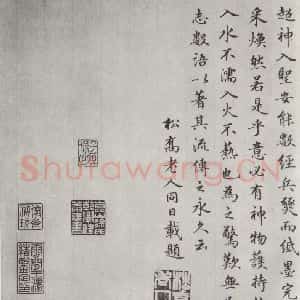 超神入聖安能數經兵燹而紙墨完
采煥然若是乎意必有神物護持
入水不濡入火不爇也為之驚歎無
志數語以著其流傳之永久云
松高老人同日載題
Shufawang.CN